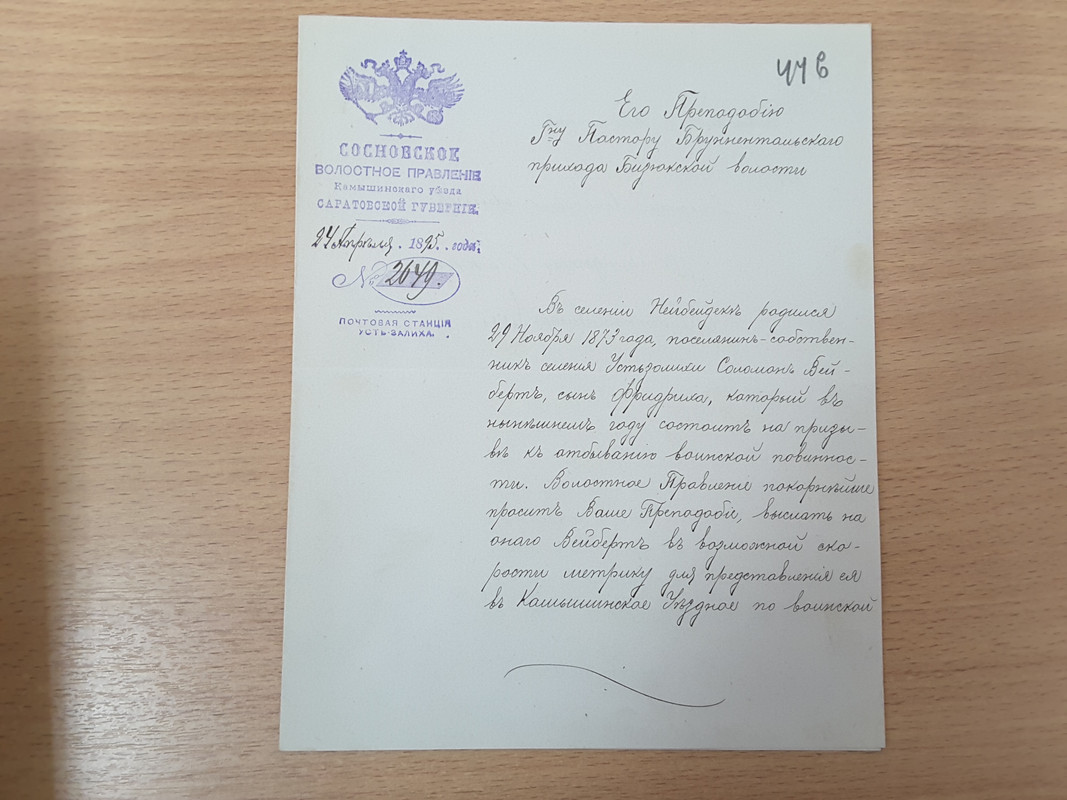 44 в
СОСНОВСКОЕ
ВОЛОСТНОЕ ПРАВЛЕНІЕ
Камышинскаго уѣзда
САРАТОВСКОЙ ГУБЕРНІИ.
24 Апрѣля. 1895. года.
№ 2649.
ПОЧТОВАЯ СТАНЦІЯ
УСТЬ-ЗАЛИХА.
Его Преподобію
Гну Пастору Брунентальскаго
прихода Бизюкской волости
Въ селеніи Нейбейдекъ родился
29 Ноября 1873 года, поселянинъ-собствен-
никъ селенія Устьзолихи Соломонъ Вей-
бертъ, сынъ Фридриха, который въ
нынѣшнемъ году состоитъ на призы-
вѣ къ отбыванію воинской повиннос-
ти. Волостное Правленіе покорнѣйше
проситъ Ваше Преподобіе, выслать на
онаго Вейбертъ въ возможной ско-
рости метрику для представленія ея
въ Камышинское Уѣздное по воинской